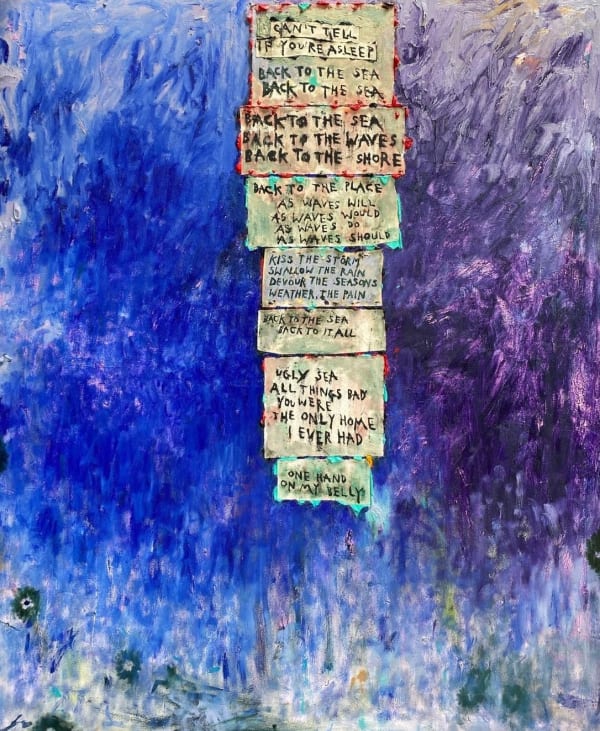 CAN'T TELL
IF YOU'RE ASLEEP
BACK TO THE SEA
BACK TO THE SEA
BACK TO THE SEA
BACK TO THE WAVES
BACK TO THE SHORE
BACK TO THE PLACE
AS WAVES WILL
AS WAVES WOULD
AS WAVES DO
AS WAVES SHOULD
KISS THE STORM
SWALLOW THE RAIN
DEVOUR THE SEASONS
WEATHER, THE PAIN
BACK TO THE SEA
BACK TO IT ALL
UGLY SEA
ALL THINGS BAD
YOU WERE
THE ONLY HOME
I EVER HAD
ONE HAND
ON MY BELLY